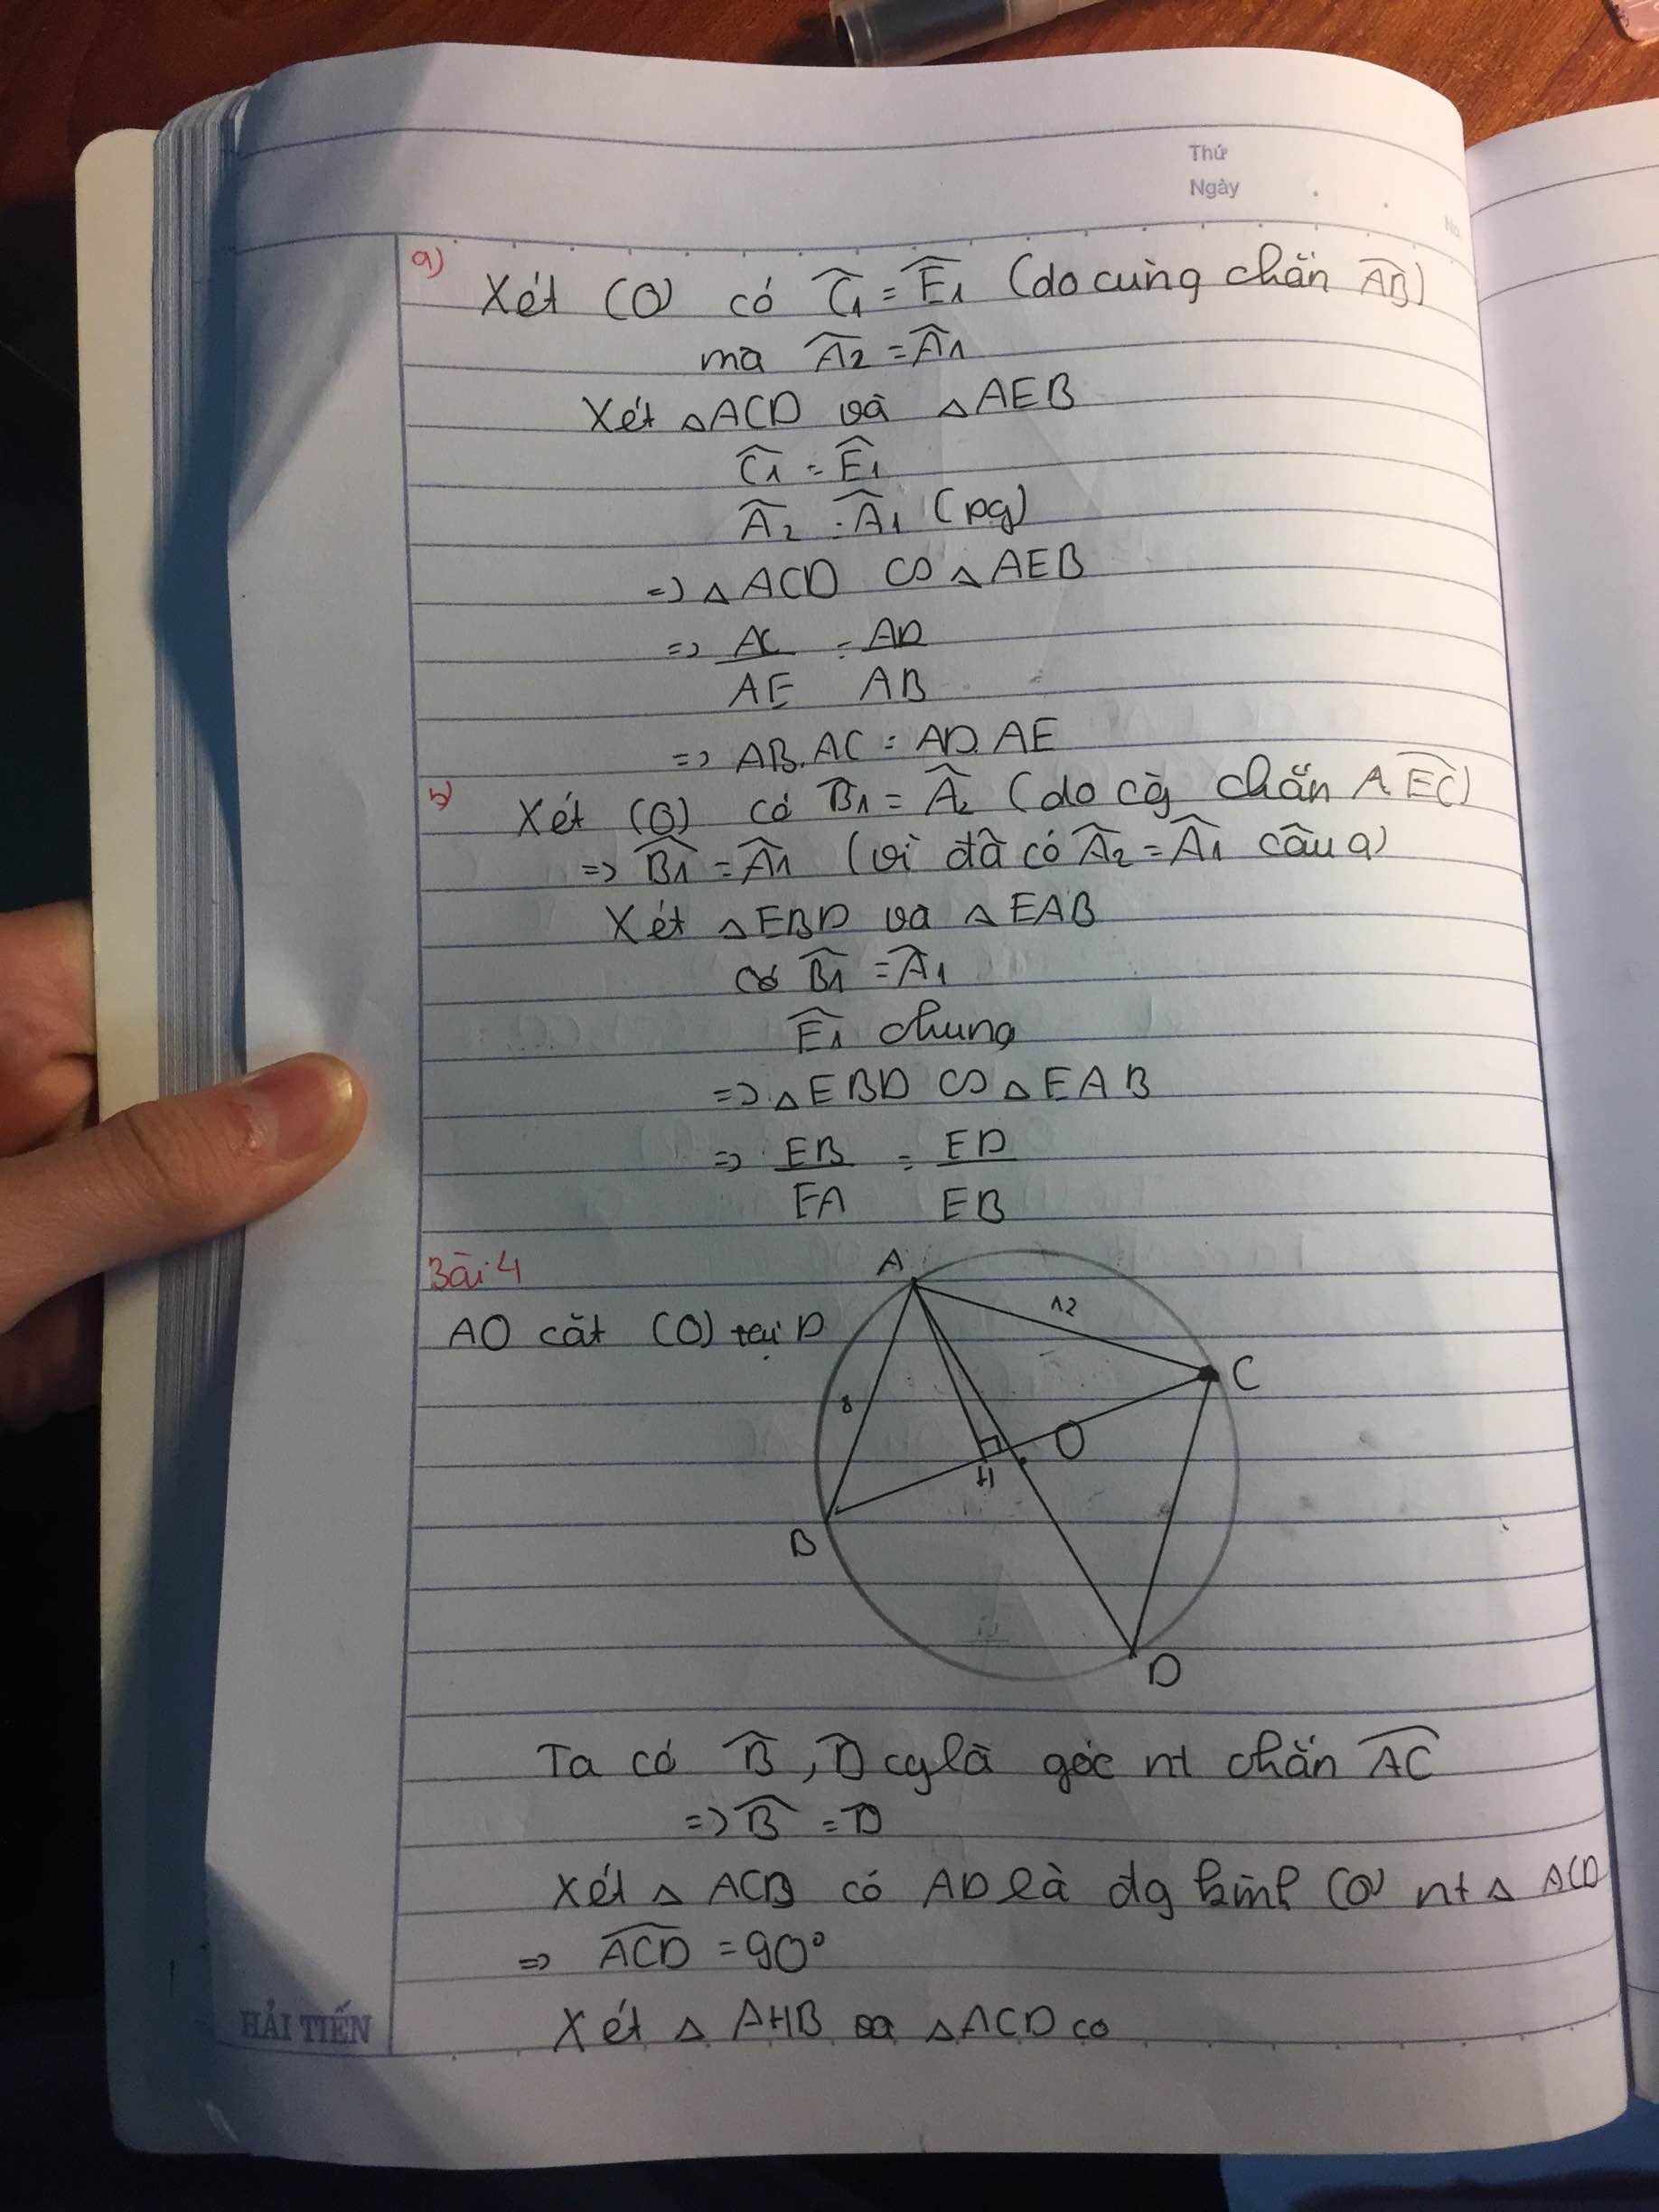 Thứ
Ngày
No.
a)
Xét (O) có Ĉ1 = Ê1 (do cùng chắn AB)
mà Â2 = Â1
Xét △ACD và △AEB
Ĉ1 = Ê1
Â2 = Â1 (pg)
=> △ACD ∽ △AEB
=> AC/AE = AD/AB
=> AB.AC = AD.AE
b)
Xét (O) có B̂1 = Â2 (do cg chắn A EC)
=> B̂1 = Â1 (vì đã có Â2 = Â1 câu a)
Xét △EBD và △EAB
có B̂1 = Â1
Ê1 chung
=> △EBD ∽ △EAB
=> EB/EA = ED/EB
Bài 4
AO cắt (O) tại D
A
12
C
8
O
H
B
D
Ta có B̂, D̂ cg là góc nt chắn AC
=> B̂ = D
Xét △ ACB có AD là đg kính (O) nt △ ACD
=> ACD = 90°
Xét △ AHB và △ACD có
HẢI TIẾN